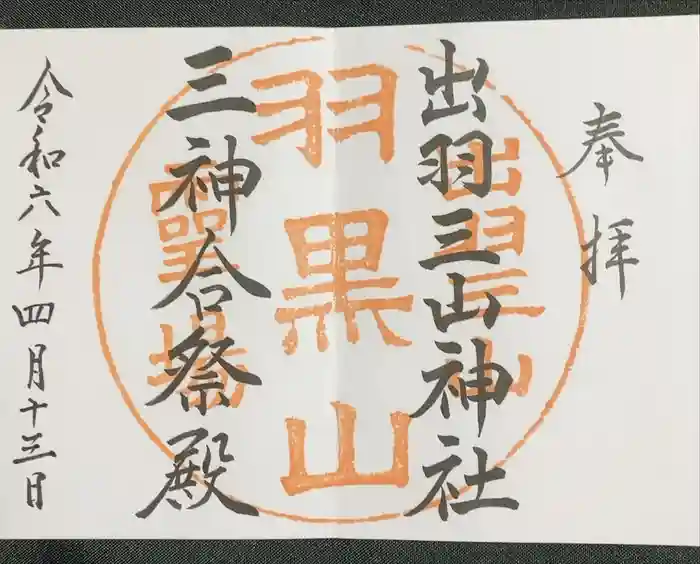 奉拝
出羽三山神社
三神合祭殿
令和六年四月十三日
出羽三山
羽黒山
霊場